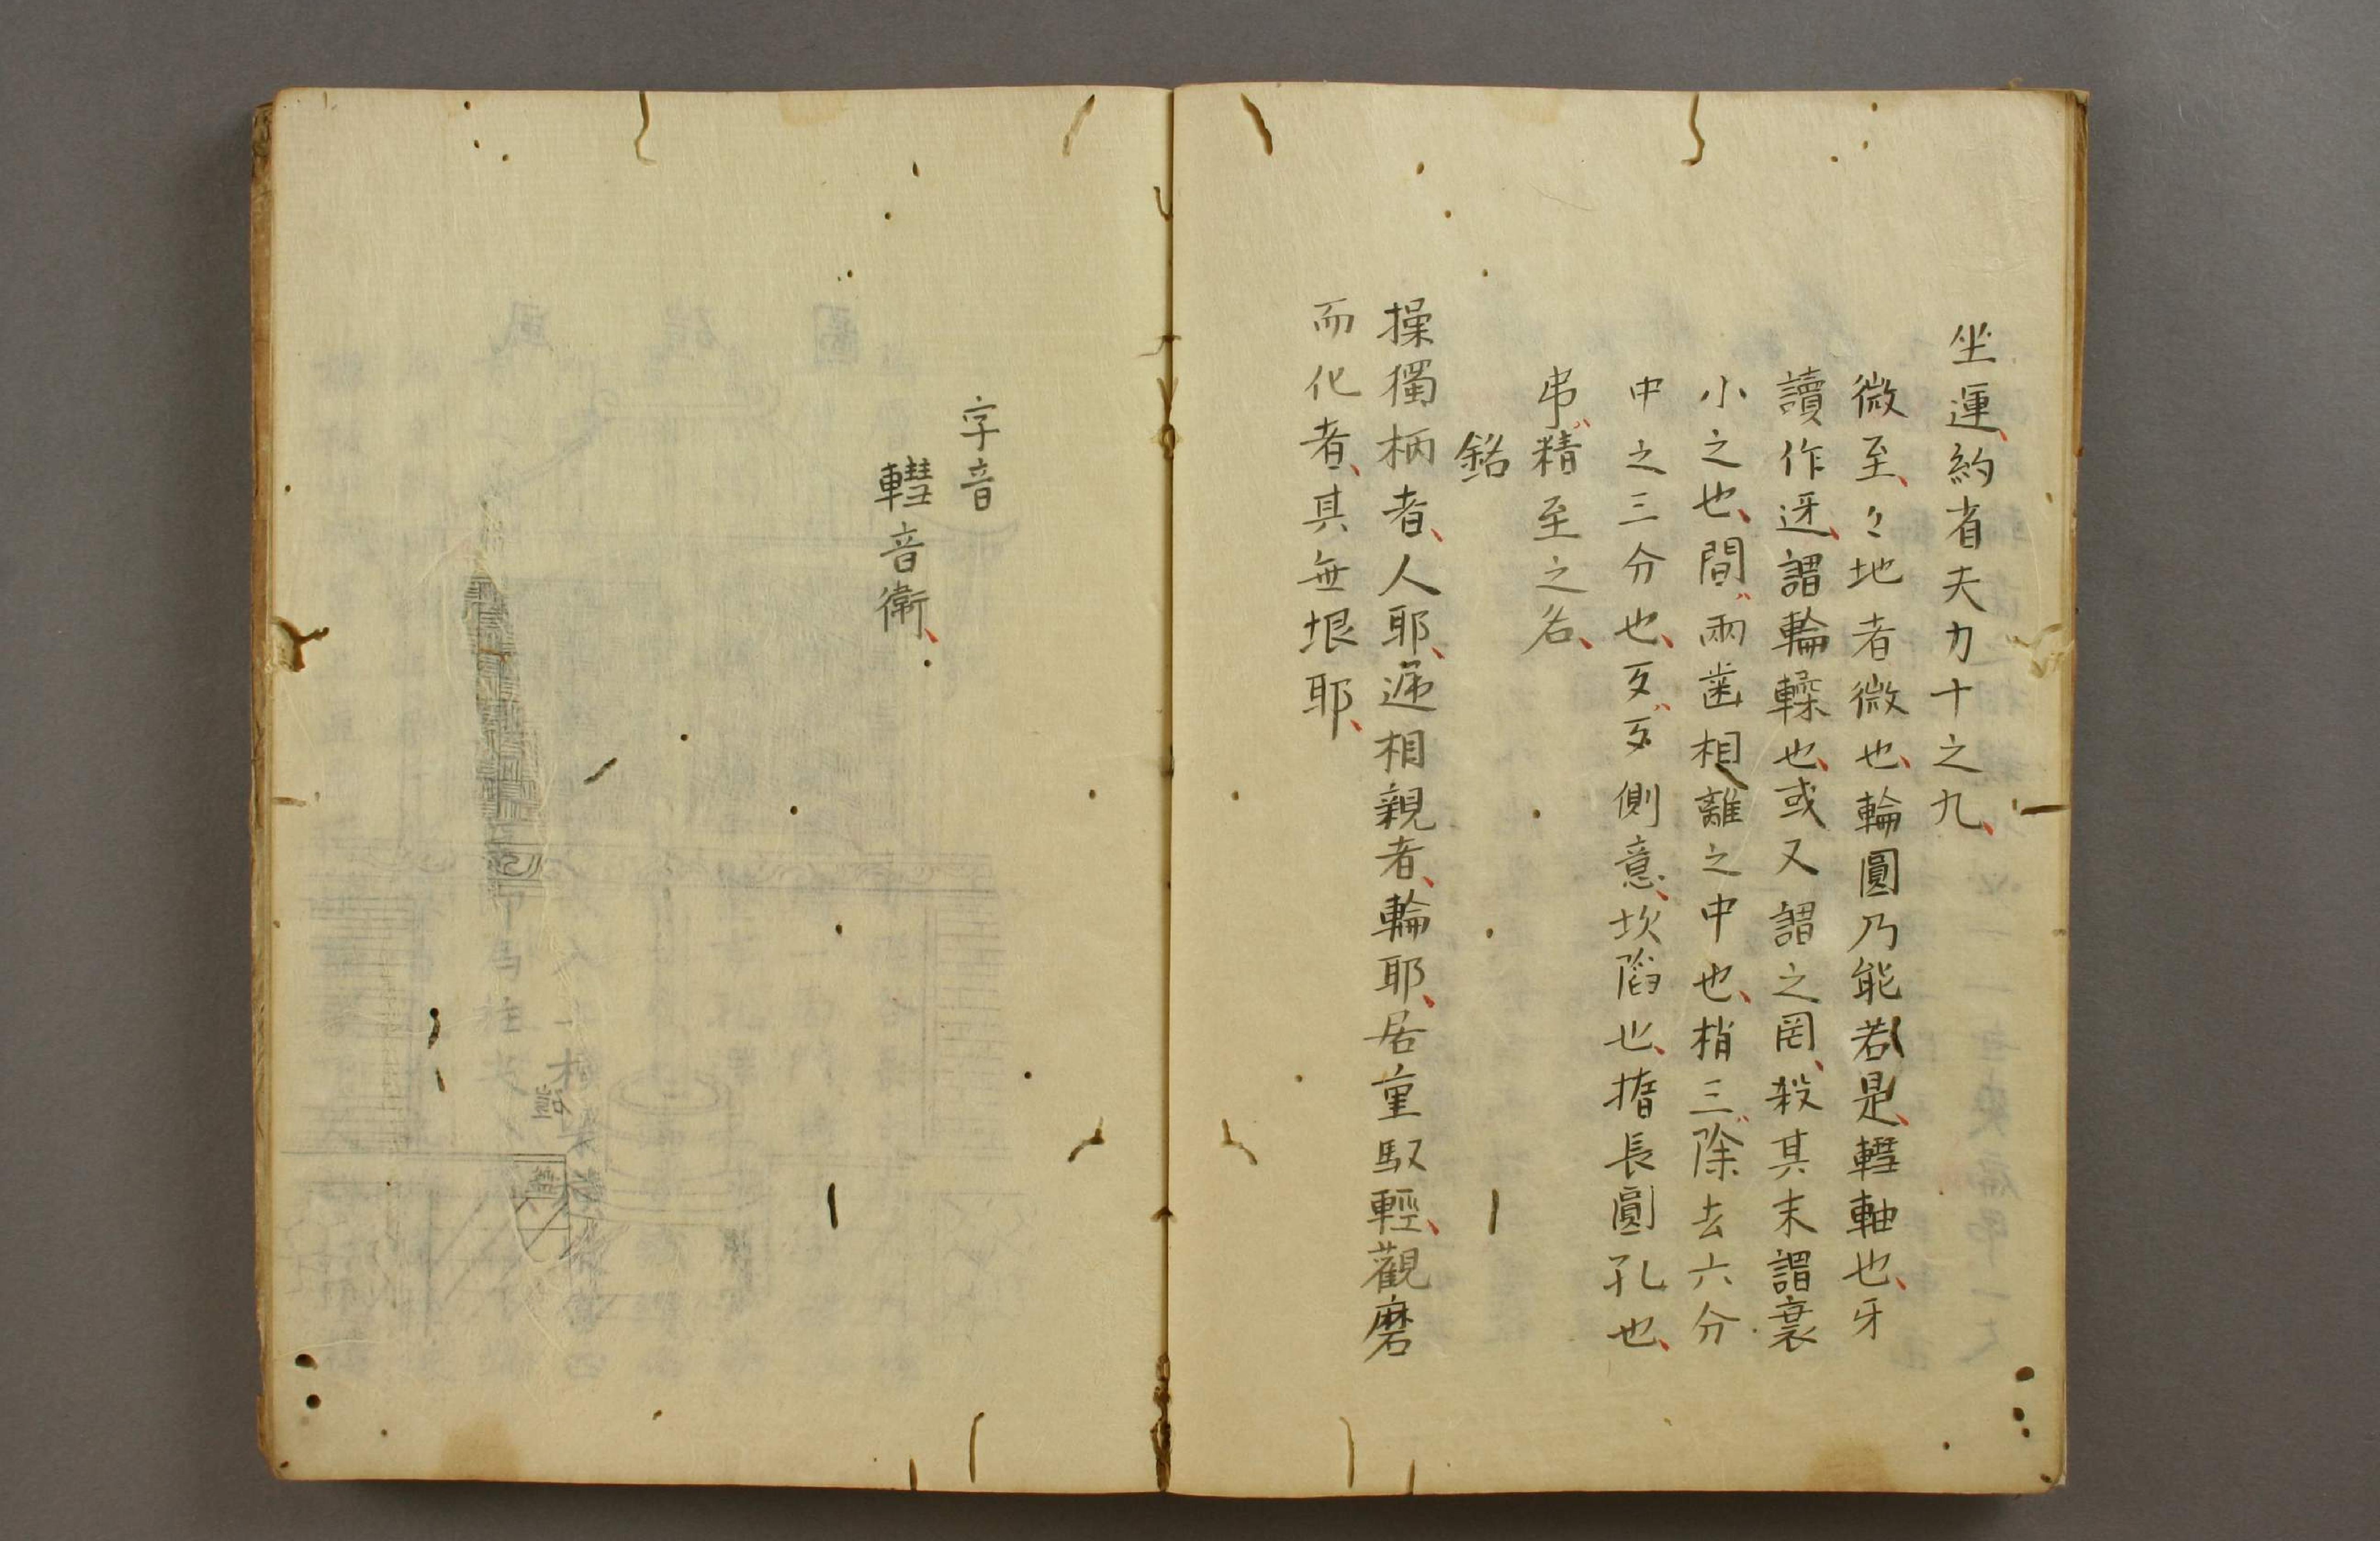 坐運、約省夫力十之九、
微至、〻地者微也、輪圓乃能若是、轊軸也、牙
讀作迓、謂輪轑也、或又謂之罔、殺其末謂衰
小之也、間、兩歯相離之中也、梢三、除去六分
中之三分也、歹、歹側意、坎陷也、揩長圓孔也、
弔、精至之名、
銘
操獨柄者、人耶、递相親者、輪耶、居重馭輕、觀磨
而化者、其無垠耶、
字音
轊音衛、